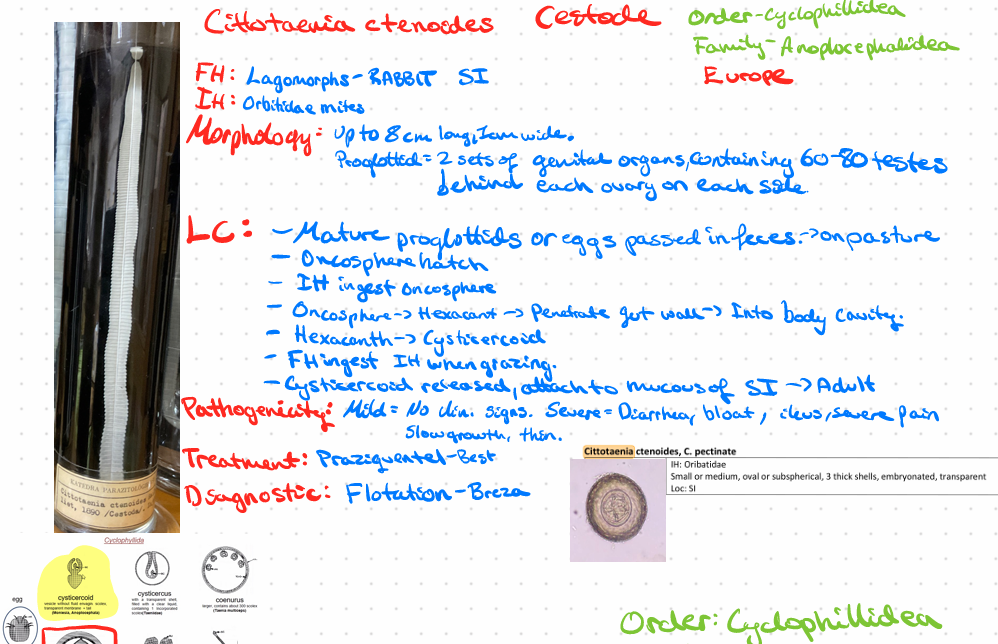 Cittotaenia ctenoides
Cestode
Order-Cyclophillidea
Family-Anoplocephalidea
Europe
FH: Lagomorphs-RABBIT SI
IH: Orbitidae mites
Morphology: Up to 8cm long, 1cm wide.
Proglottid = 2 sets of genital organs, containing 60-80 testes
behind each ovary on each side
LC: - Mature proglottids or eggs passed in feces. -> on pasture
- Oncosphere hatch
- IH ingest oncosphere
- Oncosphere -> Hexacant -> Penetrate gut wall -> Into body cavity.
- Hexacanth -> Cystisercoid
- FH ingest IH when grazing.
- Cystisercoid released, attach to mucous of SI -> Adult
Pathogenicity: Mild = No clin. signs. Severe = Diarrhea, bloat, ileus, severe pain
Slow growth, thin.
Treatment: Praziquentel-Best
Dsagnostic: Flotation-Breza
Cittotaenia ctenoides, C. pectinate
IH: Oribatidae
Small or medium, oval or subspherical, 3 thick shells, embryonated, transparent
Loc: SI
KATEDRA PARAZITOLO
Cittotaenia ctenoides
list, 1890 /Cestoda/
Cyclophyllida
egg
cysticercoid
(Moniezia, Anoplocephala)
cysticercus
with a transparent shell,
filled with a clear liquid,
containing 1
scolex(Taenidae)
coenurus
larger, contains about 300 scolex
(Taenia multiceps)
Order: Cyclophillidea